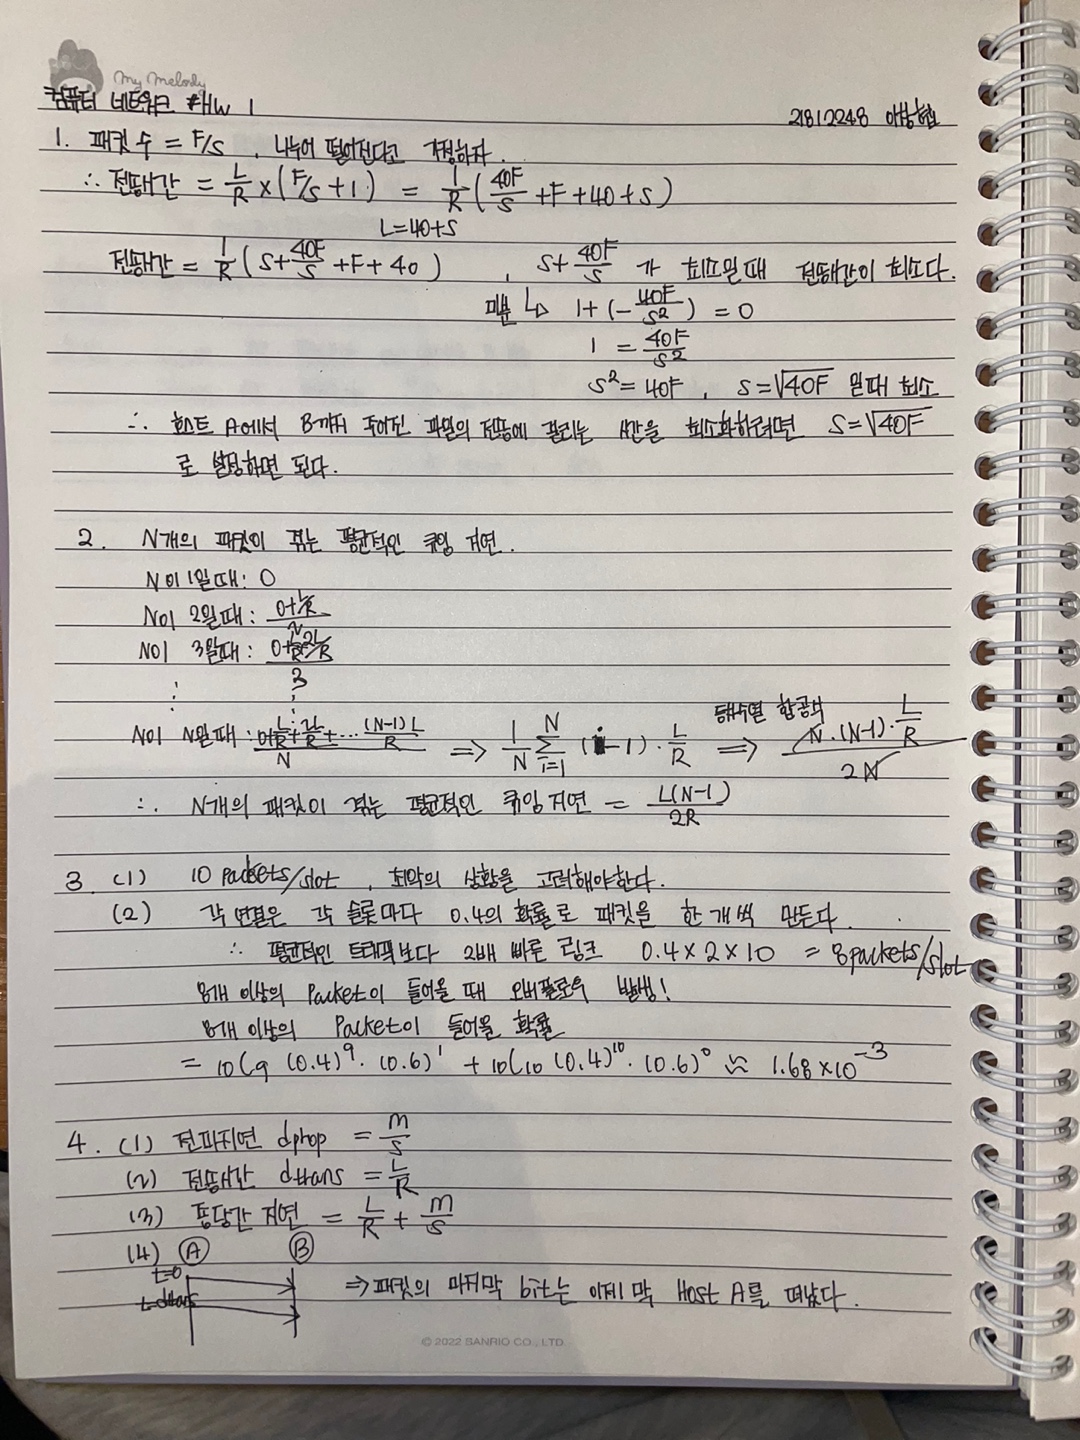 My Melody
컴퓨터 네트워크 #HW 1
21812248
1. 패킷 수 = F/S , 나누어 떨어진다고 가정하자.
∴ 전송시간 = L/R × (F/S + 1) = 1/R (40F/S + F + 40 + S)
L = 40+S
전송시간 = 1/R (S + 40F/S + F + 40) , S + 40F/S 가 최소일 때 전송시간이 최소다.
미분 ↳ 1 + (- 40F/S²) = 0
1 = 40F/S²
S² = 40F , S = √40F 일때 최소
∴ 호스트 A에서 B까지 주어진 파일의 전송에 걸리는 시간을 최소화하려면 S = √40F
로 설정하면 된다.
2. N개의 패킷이 겪는 평균적인 큐잉 지연.
N이 1일때: 0
N이 2일때: (0+L/R)/2
N이 3일때: (0+L/R+2L/R)/3
⋮ ⋮
등차수열 합공식
N이 N일때: (0+L/R+2L/R+...(N-1)L/R)/N ⇒ 1/N Σ_{i=1}^{N} (i-1)·L/R ⇒ N·(N-1)·L/R / 2N
∴ N개의 패킷이 겪는 평균적인 큐잉 지연 = L(N-1)/2R
3. (1) 10 packets/slot , 최악의 상황을 고려해야한다.
(2) 각 연결은 각 슬롯마다 0.4의 확률로 패킷을 한 개씩 만든다.
∴ 평균적인 트래픽보다 2배 빠른 링크 0.4 × 2 × 10 = 8packets/slot
8개 이상의 Packet이 들어올 때 오버플로우 발생!
8개 이상의 Packet이 들어올 확률
= 10C9 (0.4)⁹·(0.6)¹ + 10C10 (0.4)¹⁰·(0.6)⁰ ≈ 1.68×10⁻³
4. (1) 전파지연 dprop = m/s
(2) 전송시간 dtrans = L/R
(3) 종단간 지연 = L/R + m/s
(4) Ⓐ Ⓑ
t=0
t=dtrans ⇒ 패킷의 마지막 bit는 이제 막 Host A를 떠났다.
© 2022 SANRIO CO., LTD.